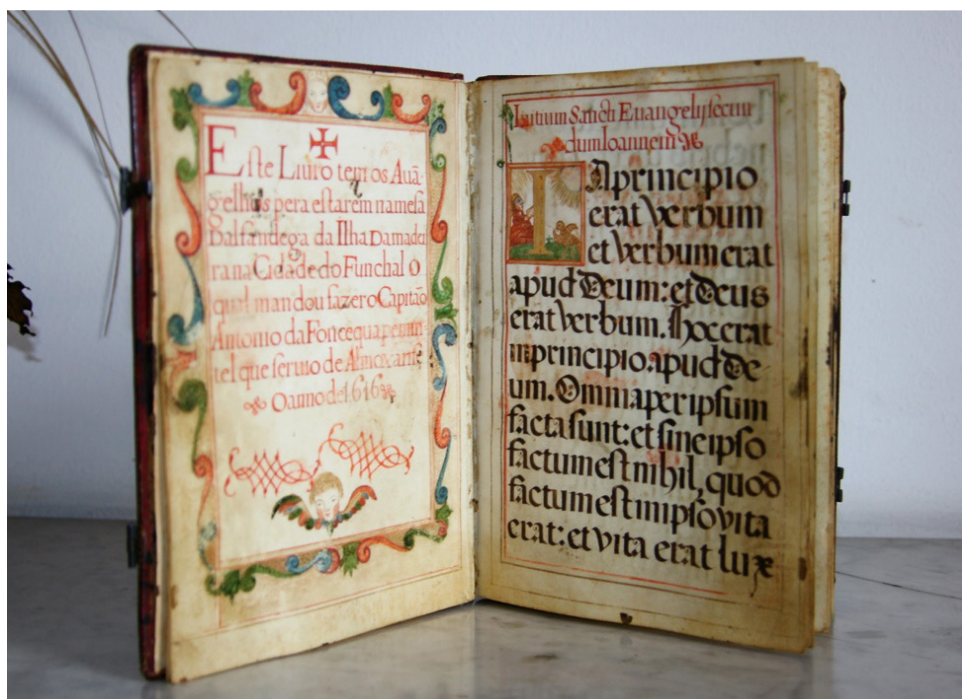 Este Liuro tem os Auã-
gelhos pera estarem na mesa
Dalfandega da Ilha Damadei
ra na Cidade do Funchal O
qual mandou fazer o Capitão
Antonio da Foncequa pemin
tel que seruio de Almoxarife
O anno de 1616
Initium Sancti Euangelij secun
dum Ioannem
In principio
erat verbum
et verbum erat
apud Deum: et Deus
erat verbum. Hoc erat
in principio apud De-
um. Omnia per ipsum
facta sunt: et sine ipso
factum est nihil, quod
factum est in ipso vita
erat: et vita erat lux